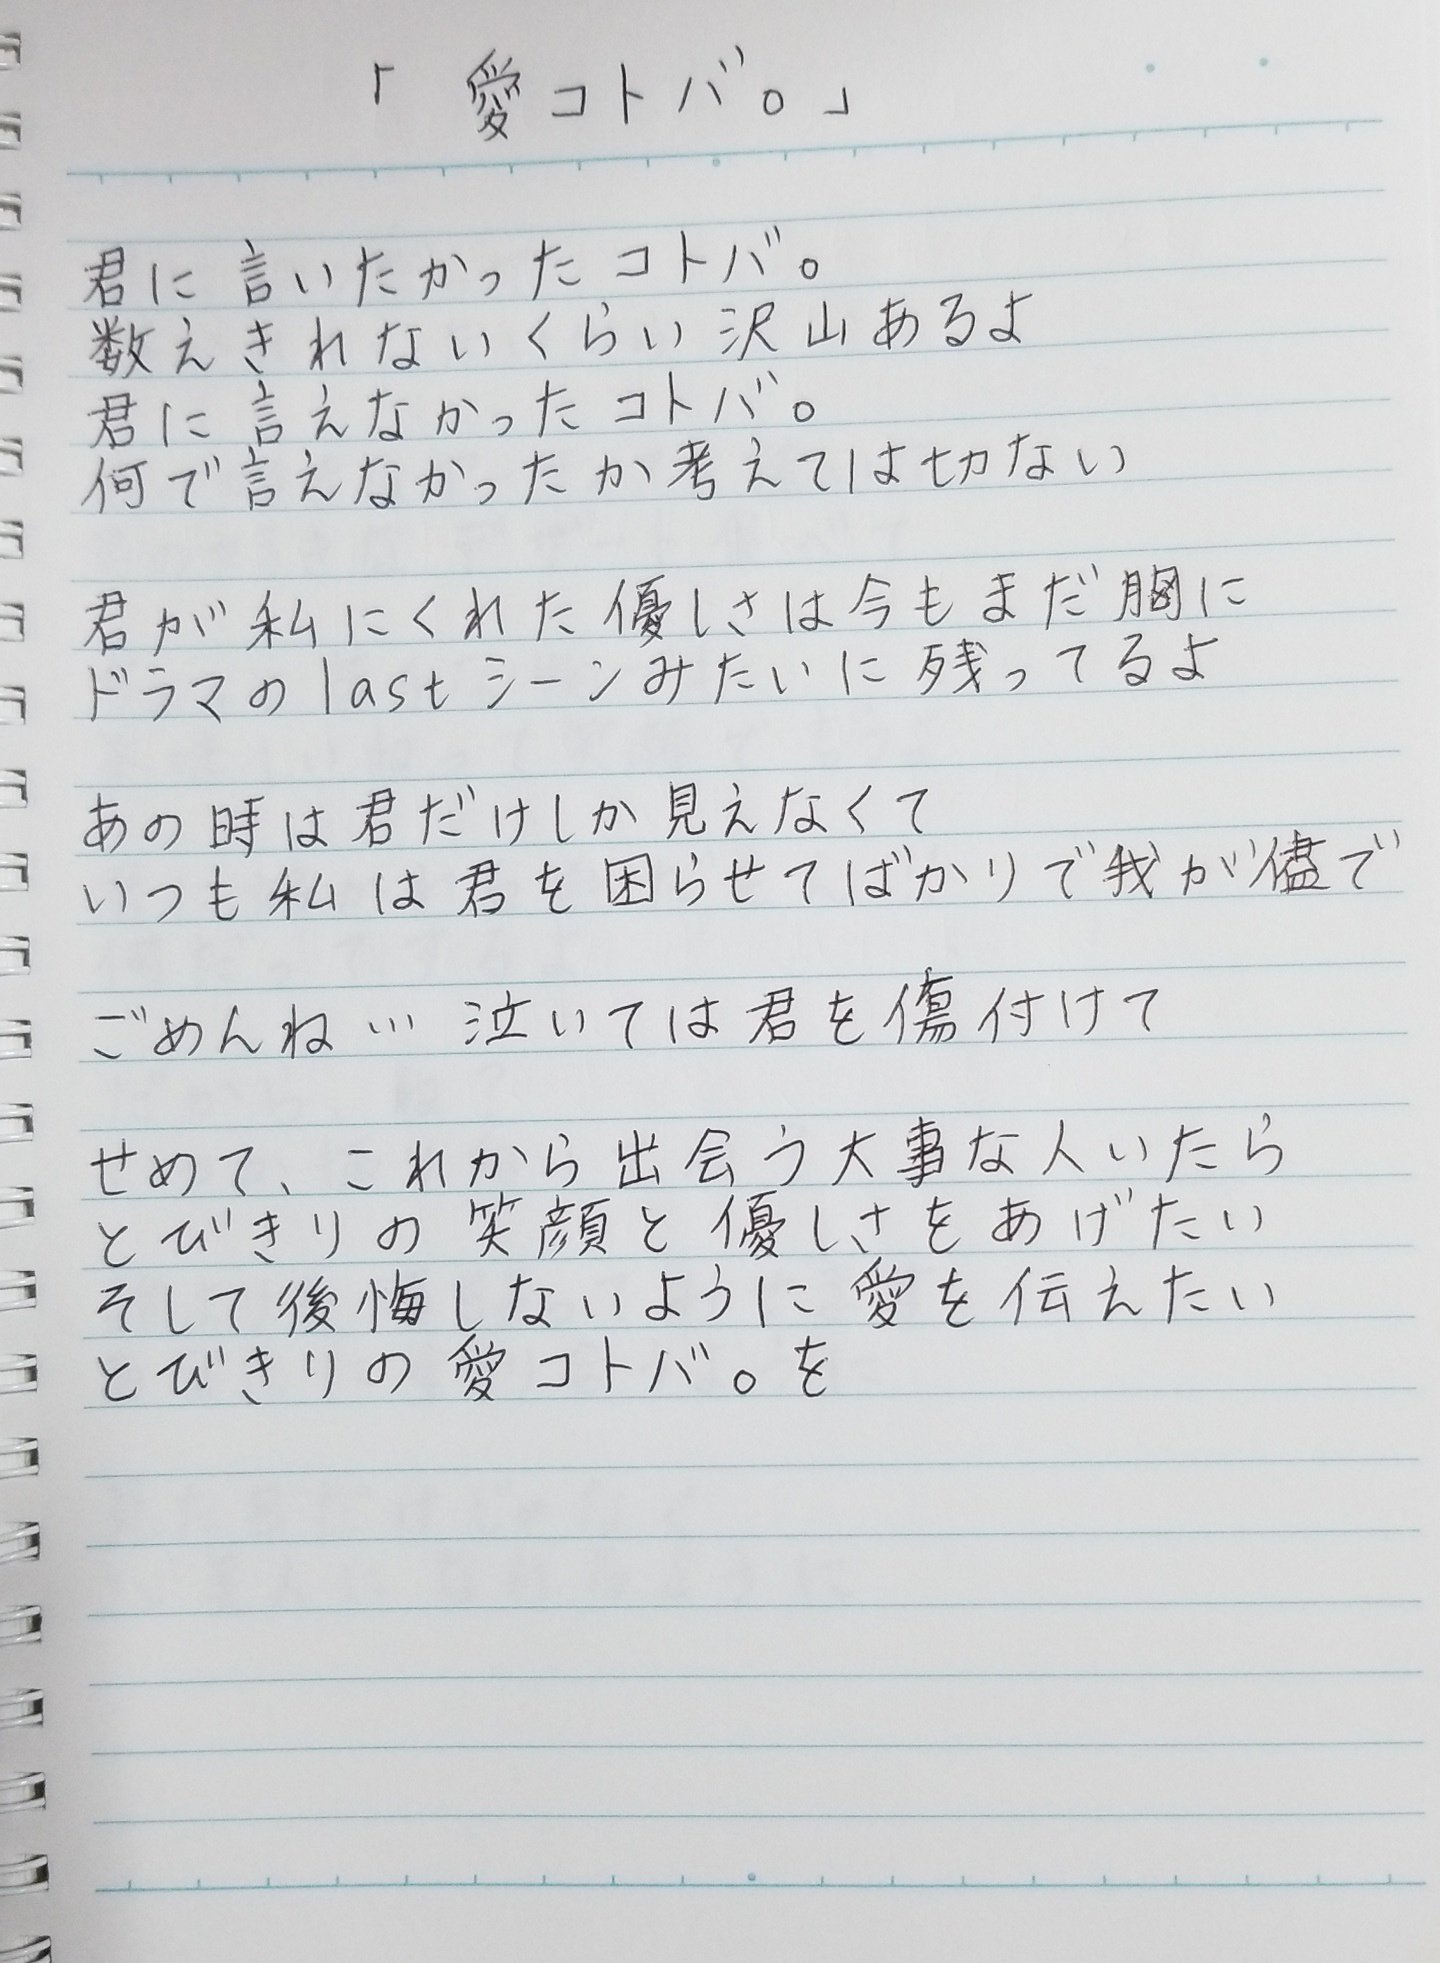 「愛コトバ。」
君に言いたかったコトバ。
数えきれないくらい沢山あるよ
君に言えなかったコトバ。
何で言えなかったか考えては切ない
君が私にくれた優しさは今もまだ胸に
ドラマのlastシーンみたいに残ってるよ
あの時は君だけしか見えなくて
いつも私は君を困らせてばかりで我が儘で
ごめんね…泣いては君を傷付けて
せめて、これから出会う大事な人いたら
とびきりの笑顔と優しさをあげたい
そして後悔しないように愛を伝えたい
とびきりの愛コトバ。を